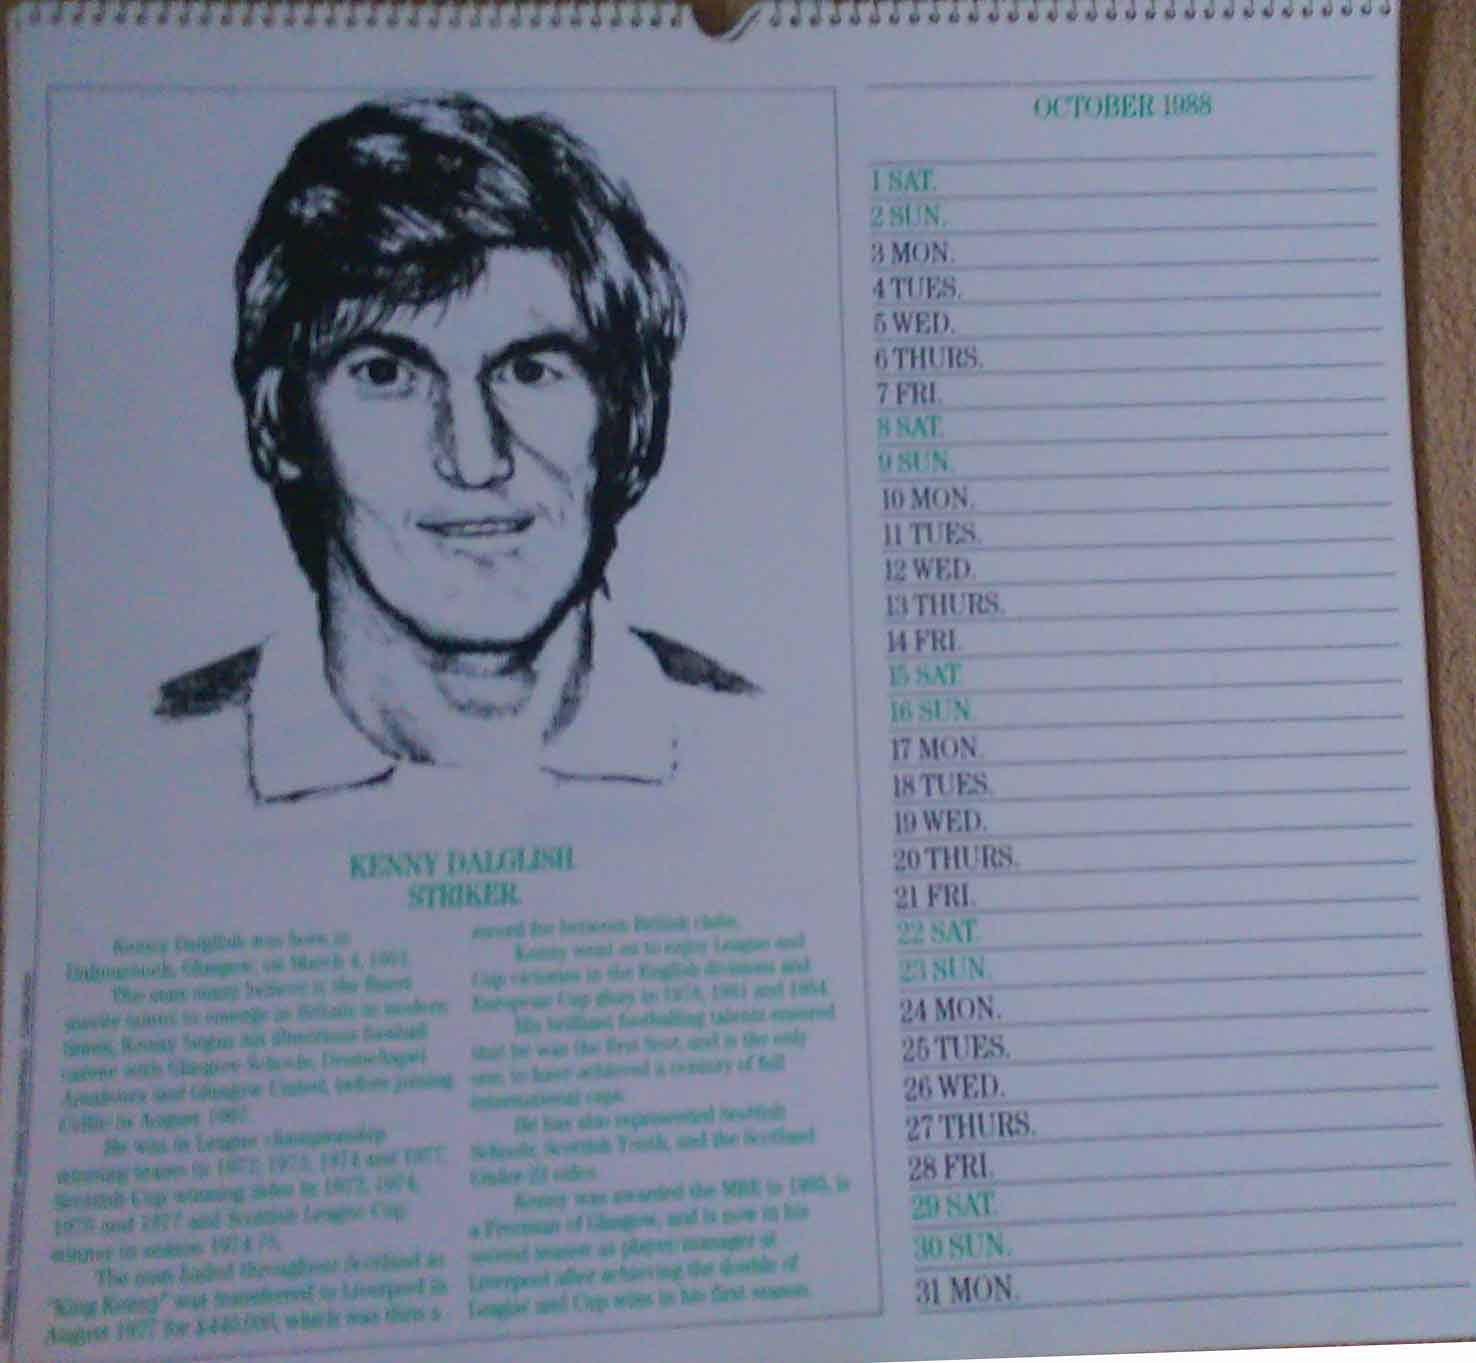 KENNY DALGLISH
STRIKER
Kenny Dalglish was born in
Dalmarnock, Glasgow, on March 4, 1951.
The man many believe is the finest
soccer talent to emerge in Britain in modern
times, Kenny began his illustrious football
career with Glasgow Schools, Drumchapel
Amateurs and Glasgow United, before joining
Celtic in August 1967.
He was in League championship
winning teams in 1972, 1973, 1974 and 1977,
Scottish Cup winning sides in 1972, 1974,
1975 and 1977 and Scottish League Cup
winner in season 1974-75.
The man hailed throughout Scotland as
"King Kenny" was transferred to Liverpool in
August 1977 for £440,000, which was then a
record fee between British clubs.
Kenny went on to enjoy League and
Cup victories in the English divisions and
European Cup glory in 1978, 1981 and 1984.
His brilliant footballing talents ensured
that he was the first Scot, and is the only
one, to have achieved a century of full
international caps.
He has also represented Scottish
Schools, Scottish Youth, and the Scotland
Under-23 sides.
Kenny was awarded the MBE in 1985, is
a Freeman of Glasgow, and is now in his
second season as player/manager at
Liverpool after achieving the double of
League and Cup wins in his first season.
OCTOBER 1988
1 SAT.
2 SUN.
3 MON.
4 TUES.
5 WED.
6 THURS.
7 FRI.
8 SAT.
9 SUN.
10 MON.
11 TUES.
12 WED.
13 THURS.
14 FRI.
15 SAT.
16 SUN.
17 MON.
18 TUES.
19 WED.
20 THURS.
21 FRI.
22 SAT.
23 SUN.
24 MON.
25 TUES.
26 WED.
27 THURS.
28 FRI.
29 SAT.
30 SUN.
31 MON.